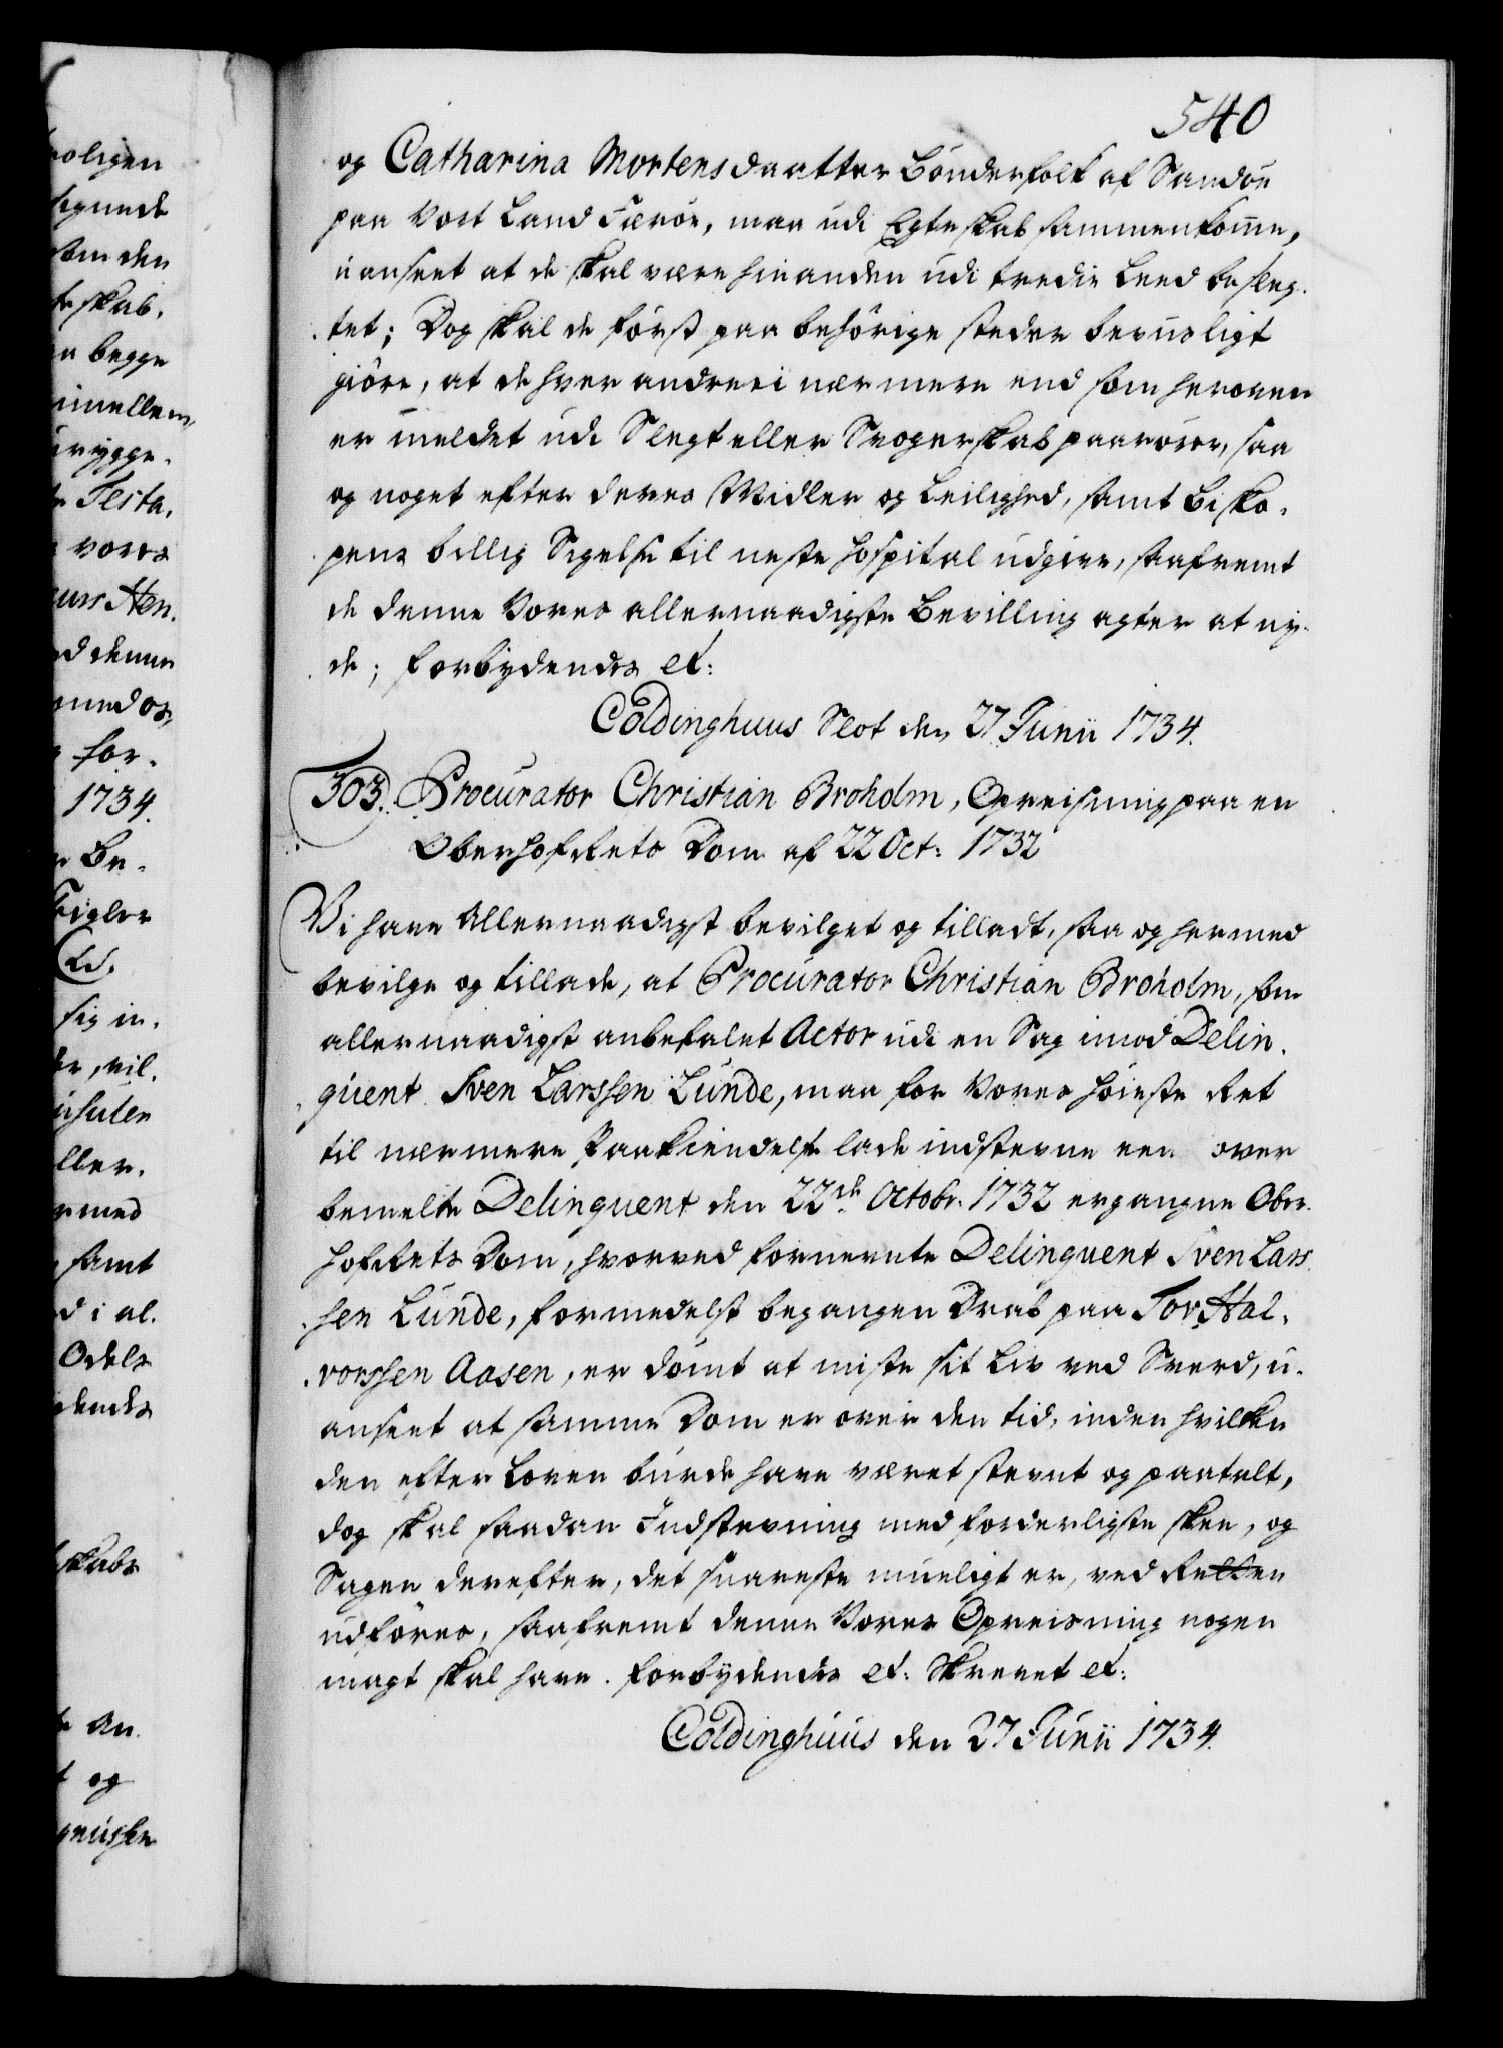 540
og Catharina Mortensdaatter Bønderfolk af Sandøe
paa Vort Land Færöe, maa udi Egteskab sammenkomme,
uanseet at de skal være hinanden udi tredie Leed besleg-
tet; Dog skal de först paa behörige steder beviisligt
giöre, at de hverandre ei nærmere end som heroven
er meldet udi Slegt eller Svogerskab paarörer, saa
og noget efter deres Midler og Leilighed, samt Bisko-
pens billig Sigelse til neste Hospital udgive, saafremt
de denne Vores allernaadigste Bevilling agter at ny-
de; forbydendes et:
Coldinghuus Slot den 27 Junii 1734.
303. Procurator Christian Broholm, Opreisning paa en
OberhofRets Dom af 22 Oct: 1732
Vi have Allernaadigst bevilget og tilladt, saa og hermed
bevilge og tillade, at Procurator Christian Broholm, som
allernaadigst anbefalet Actor udi en Sag imod Delin-
quent Sven Larssen Lunde, maa for Vores höieste Ret
til nærmere Paakiendelse lade indstevne een over
bemelte Delinquent den 22de Octobr: 1732 ergangne Ober-
hofRets Dom, hvorved fornevnte Delinquent Sven Lars-
sen Lunde, formedelst begangen Drab paa Tor Hal-
vorssen Aasen, er dömt at miste sit Liv ved Sverd, u-
anseet at samme Dom er over den tid, inden hvilken
den efter Loven burde have været stevnt og paatalt,
dog skal saadan Indstevning med forderligste skee, og
Sagen derefter, det snareste mueligt er, ved Retten
udföres, saafremt denne Vores Opreisning nogen
magt skal have. forbydendes et: Skrevet et:
Coldinghuus den 27 Junii 1734.